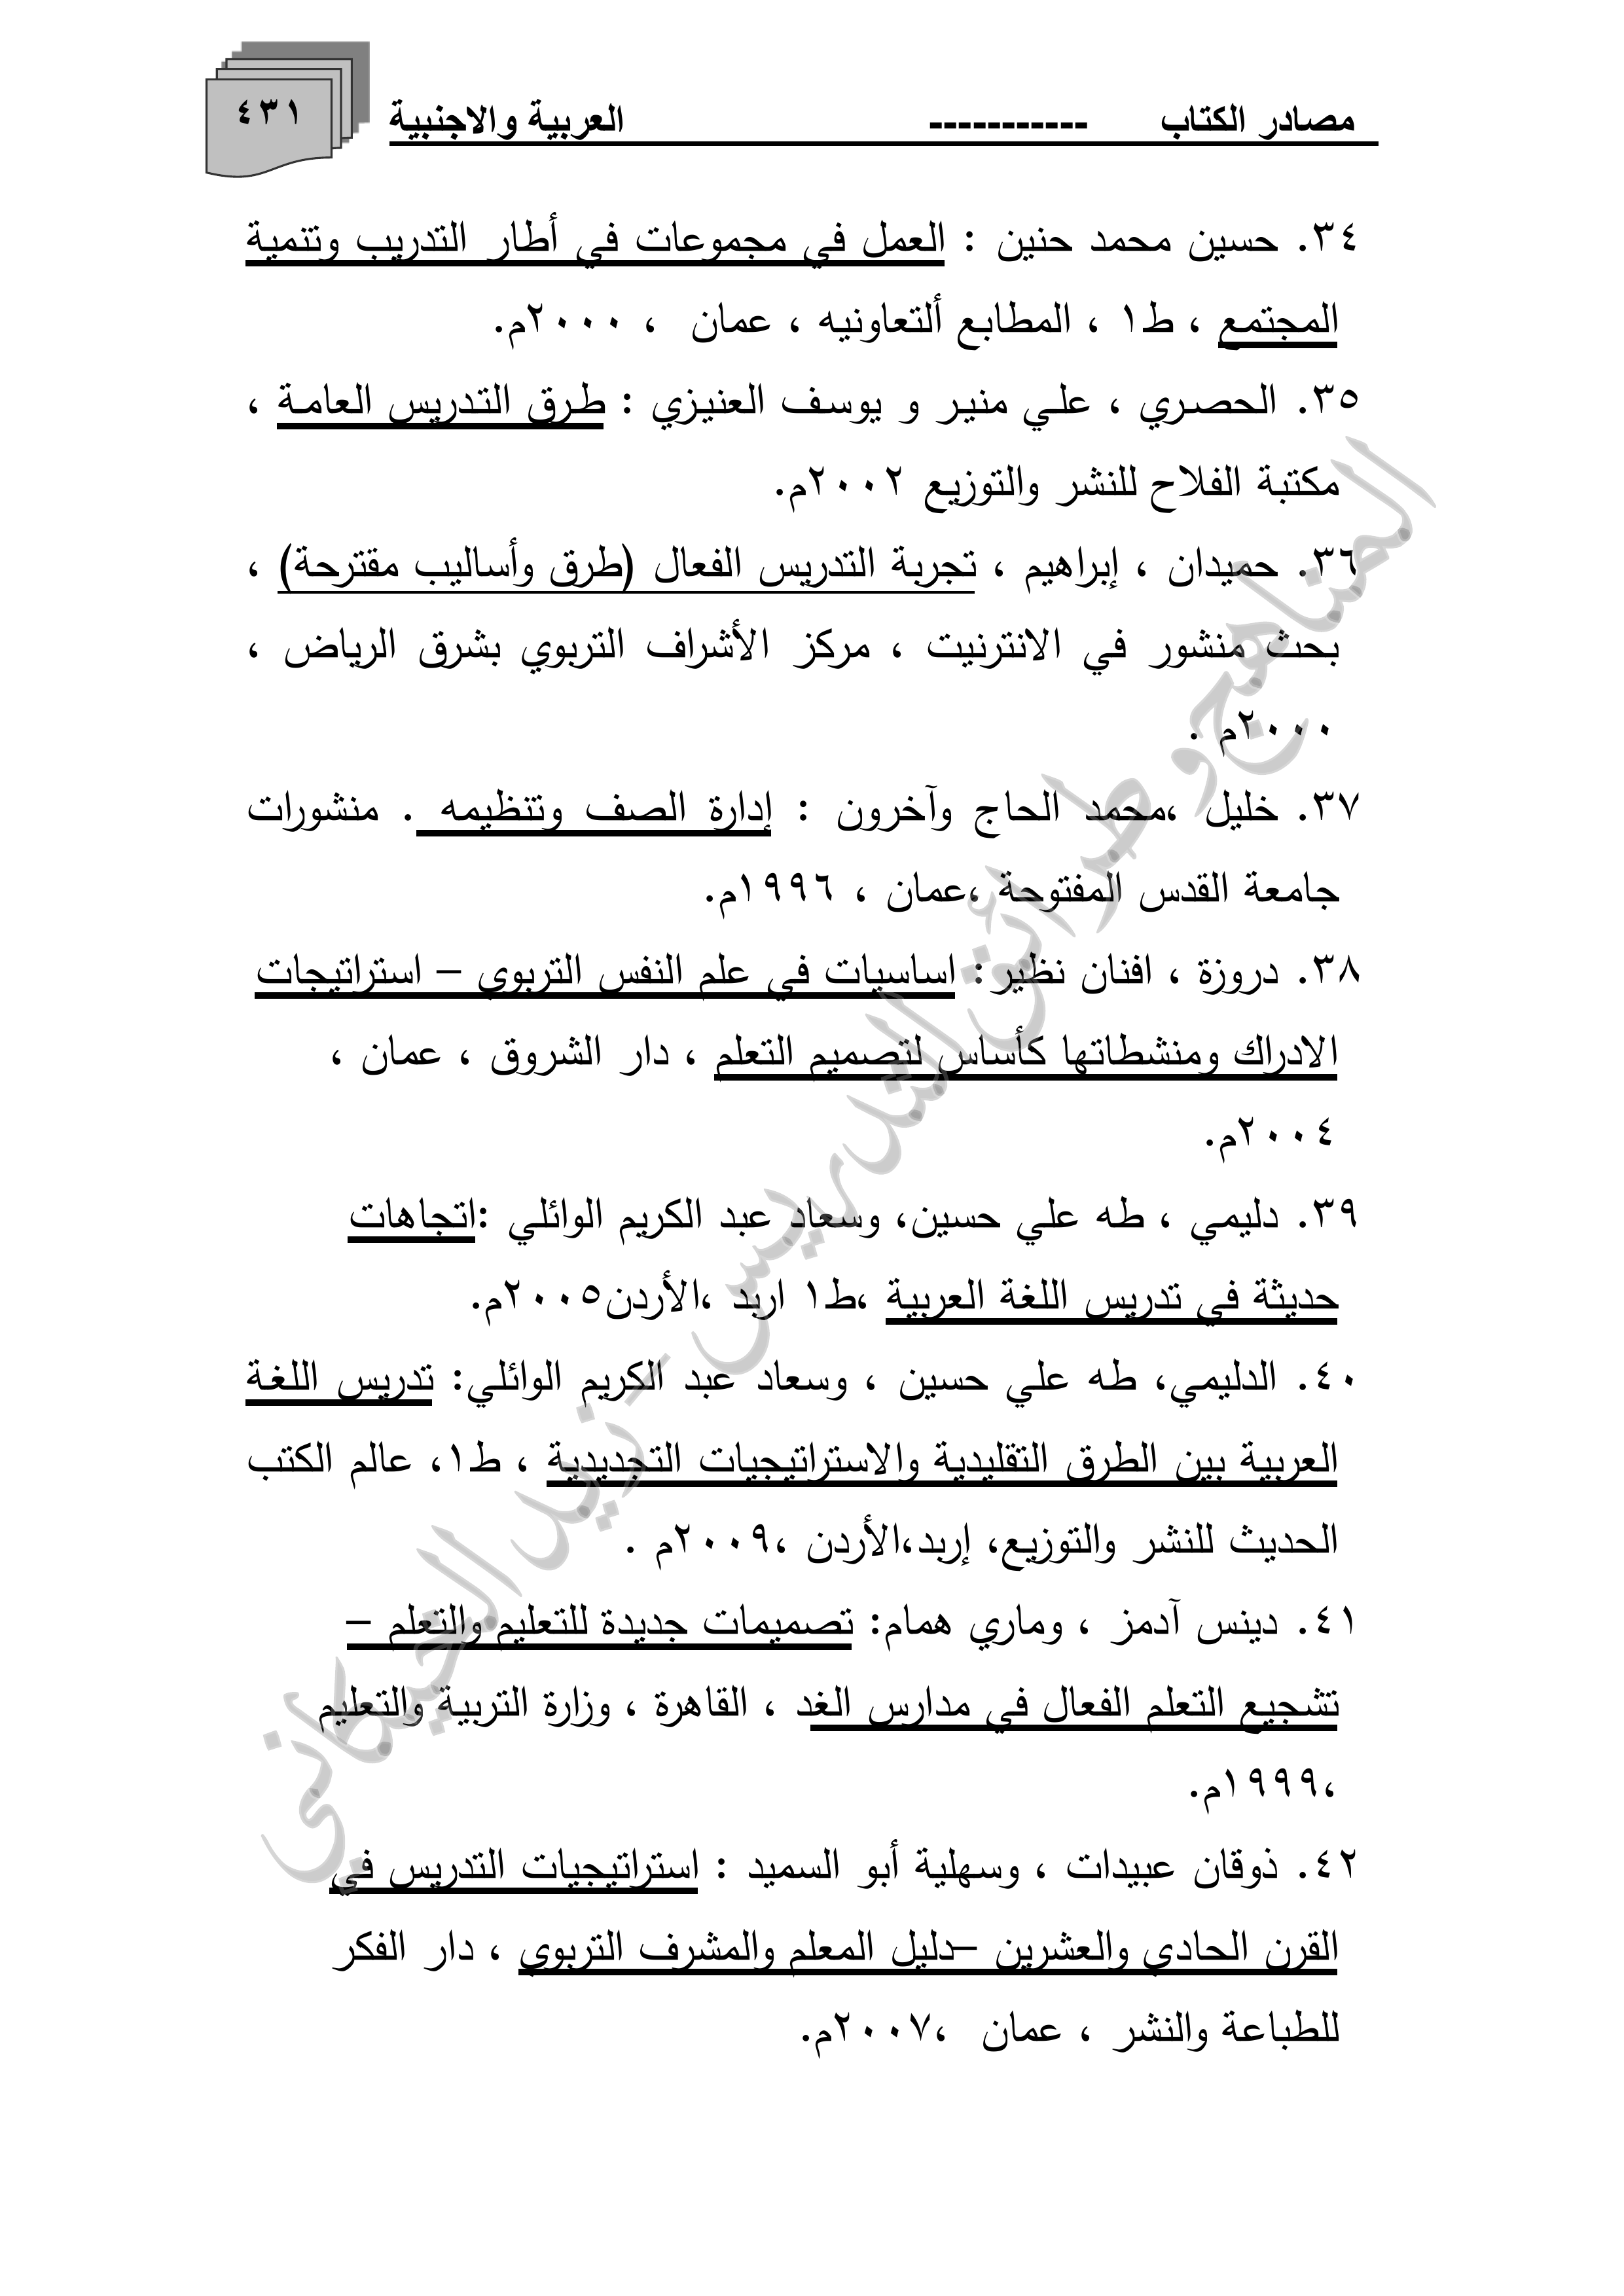 مصادر الكتاب ----------- العربية والاجنبية
٤٣١
٣٤. حسين محمد حنين : العمل في مجموعات في أطار التدريب وتنمية
المجتمع ، ط١ ، المطابع ألتعاونيه ، عمان ، ٢٠٠٠م.
٣٥. الحصري ، علي منير و يوسف العنيزي : طرق التدريس العامة ،
مكتبة الفلاح للنشر والتوزيع ٢٠٠٢م.
٣٦. حميدان ، إبراهيم ، تجربة التدريس الفعال (طرق وأساليب مقترحة) ،
بحث منشور في الانترنيت ، مركز الأشراف التربوي بشرق الرياض ،
٢٠٠٠م .
٣٧. خليل ،محمد الحاج وآخرون : إدارة الصف وتنظيمه . منشورات
جامعة القدس المفتوحة ،عمان ، ١٩٩٦م.
٣٨. دروزة ، افنان نظير: اساسيات في علم النفس التربوي – استراتيجات
الادراك ومنشطاتها كأساس لتصميم التعلم ، دار الشروق ، عمان ،
٢٠٠٤م.
٣٩. دليمي ، طه علي حسين، وسعاد عبد الكريم الوائلي :اتجاهات
حديثة في تدريس اللغة العربية ،ط١ اربد ،الأردن٢٠٠٥م.
٤٠. الدليمي، طه علي حسين ، وسعاد عبد الكريم الوائلي: تدريس اللغة
العربية بين الطرق التقليدية والاستراتيجيات التجديدية ، ط١، عالم الكتب
الحديث للنشر والتوزيع، إربد،الأردن ،٢٠٠٩م .
٤١. دينس آدمز ، وماري همام: تصميمات جديدة للتعليم والتعلم –
تشجيع التعلم الفعال في مدارس الغد ، القاهرة ، وزارة التربية والتعليم
،١٩٩٩م.
٤٢. ذوقان عبيدات ، وسهلية أبو السميد : استراتيجيات التدريس في
القرن الحادي والعشرين –دليل المعلم والمشرف التربوي ، دار الفكر
للطباعة والنشر ، عمان ،٢٠٠٧م.
المناهج و طرائق التدريس - زيد الخيكاني